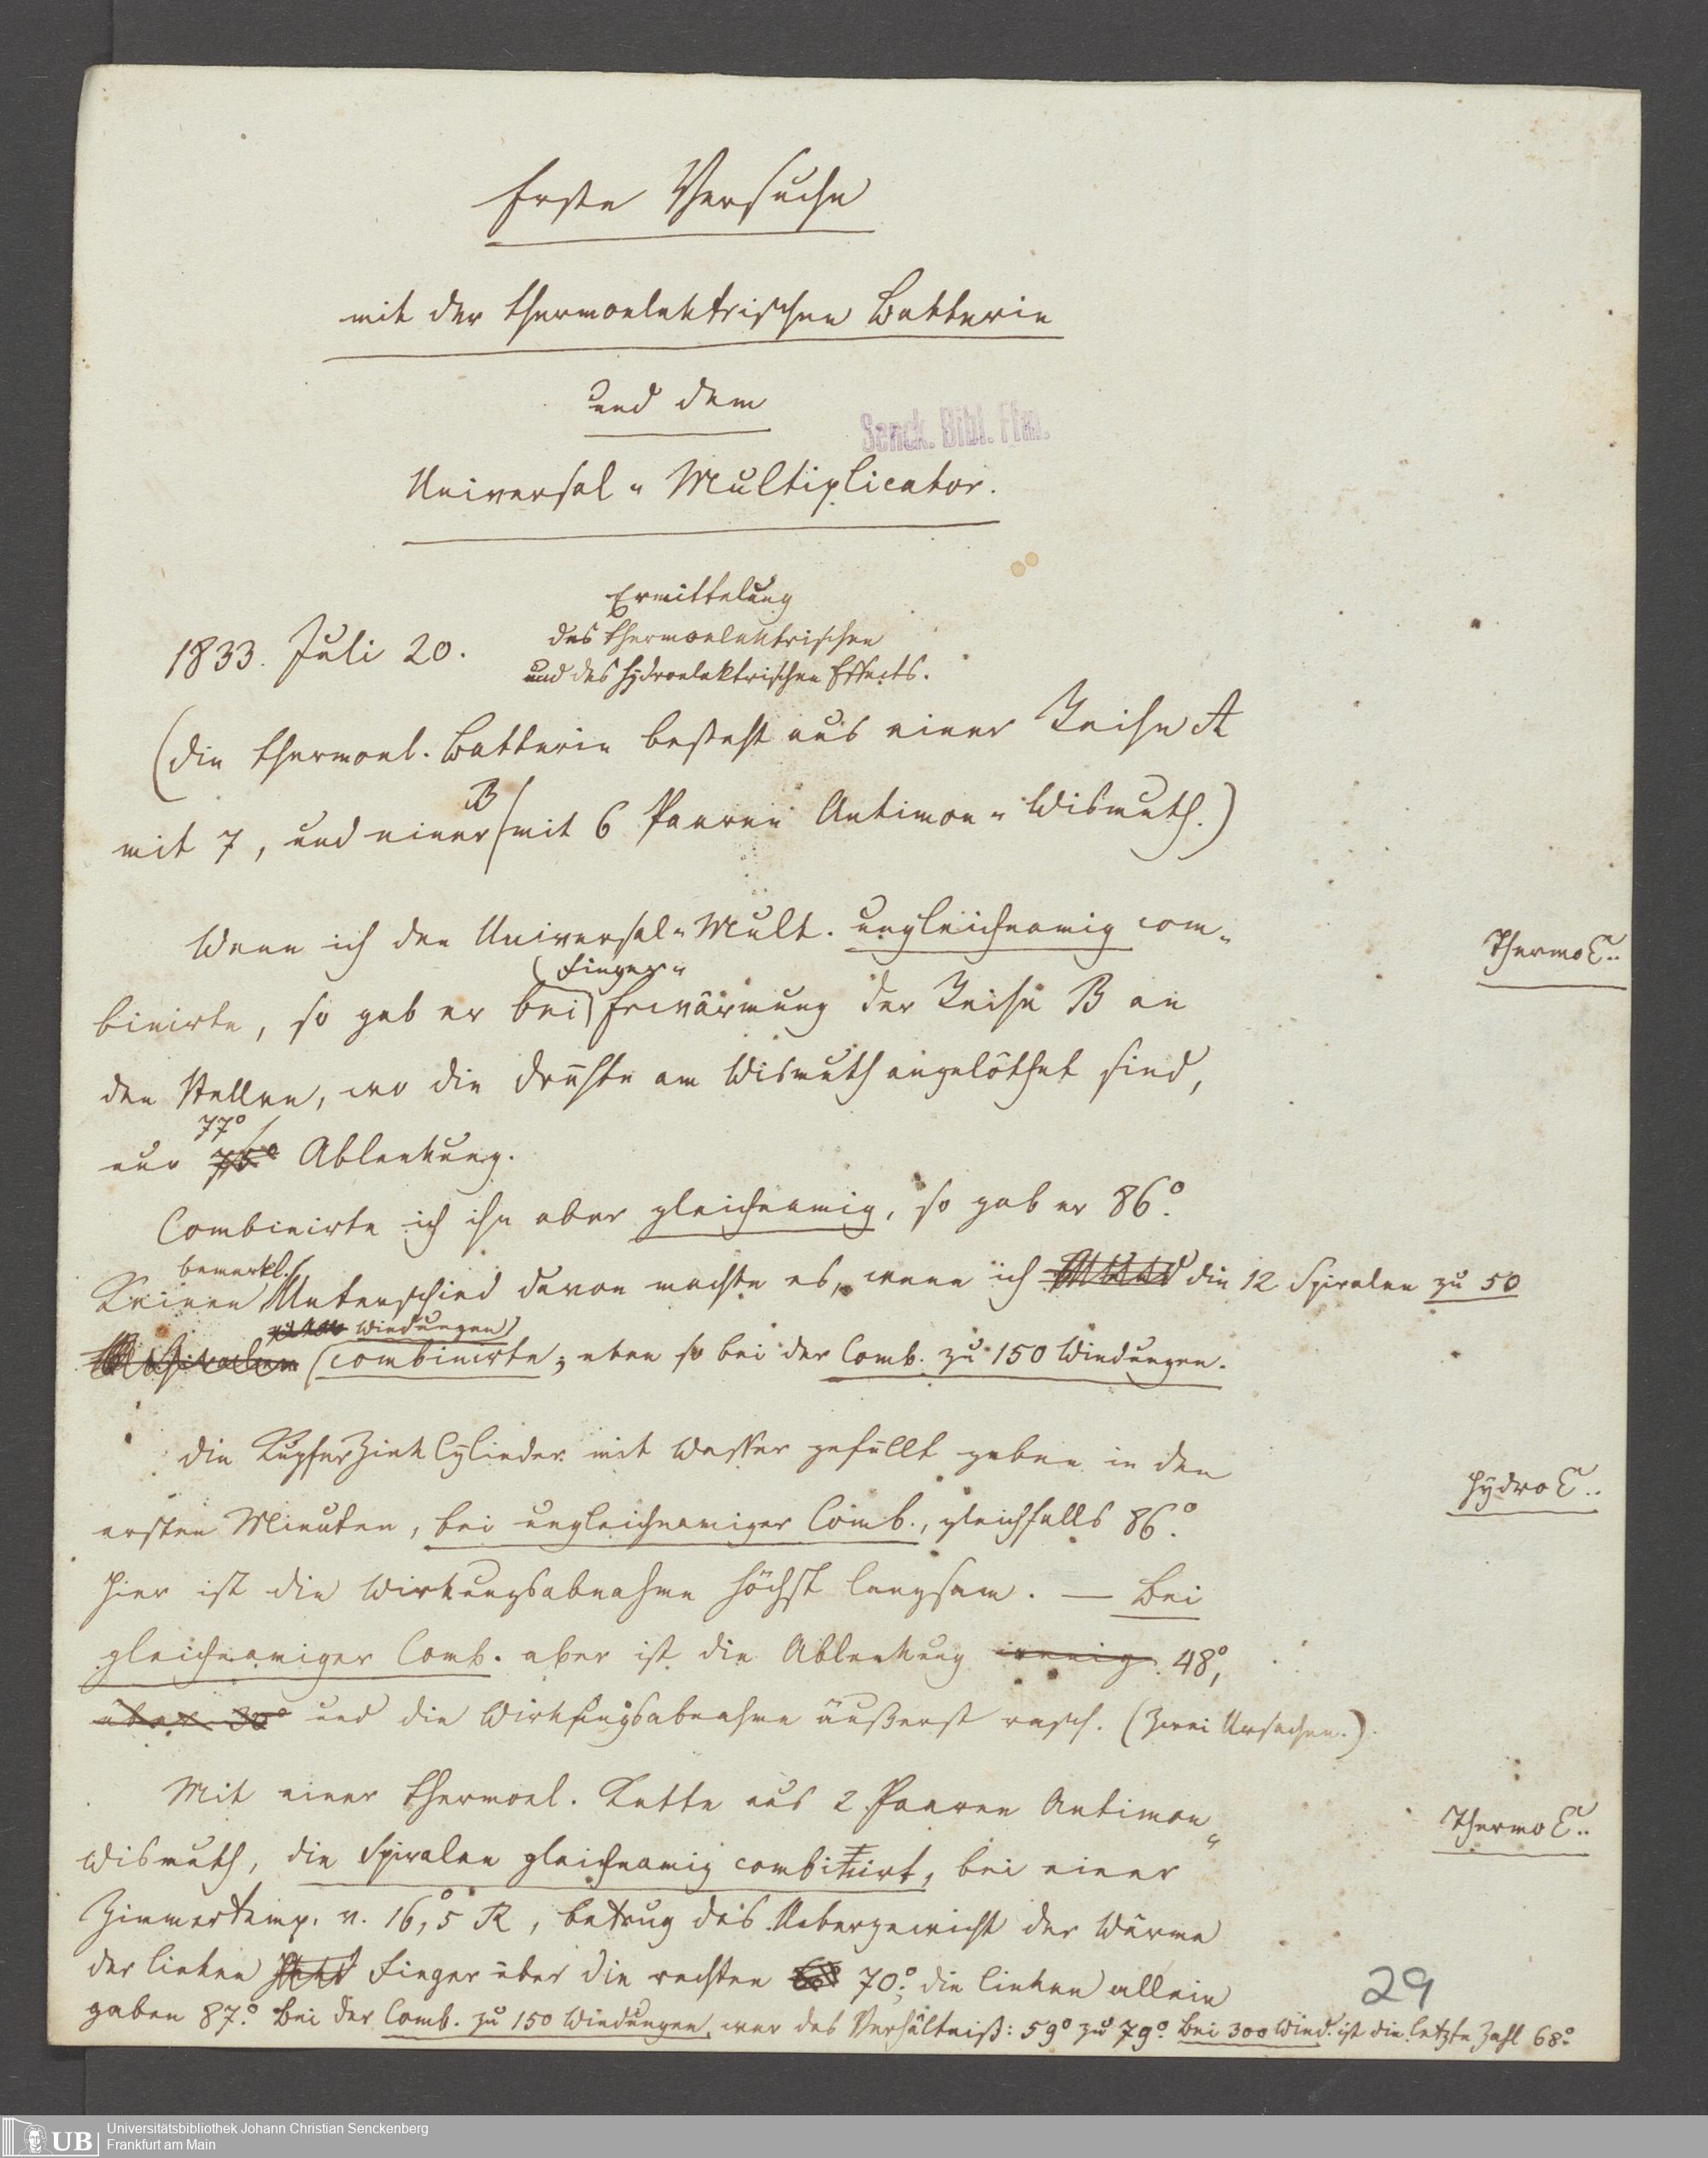 Erste Versuche
mit der thermoelektrischen Batterie
und dem
Senck. Bibl. Ffm.
Universal-Multiplicator.
1833. Juli 20.
Ermittelung
des thermoelektrischen
und des hydroelektrischen Effects.
(Die thermoel. Batterie besteht aus einer Reihe A
mit 7, und einer B mit 6 Paaren Antimon-Wismuth.)
Wenn ich den Universal-Mult. ungleichnamig com-
binirte, so gab er bei Finger-Erwärmung der Reihe B an
den Stellen, wo die Drähte am Wismuth angelöthet sind,
nur 77° Ablenkung.
Combinirte ich ihn aber gleichnamig, so gab er 86°.
Keinen bemerkl. Unterschied davon machte es, wenn ich die 12 Spiralen zu 50
Windungen combinirte; eben so bei der Comb. zu 150 Windungen.
Die KupferZinkCylinder mit Wasser gefüllt geben in den
ersten Minuten, bei ungleichnamiger Comb., gleichfalls 86°.
Hier ist die Wirkungsabnahme höchst langsam. — Bei
gleichnamiger Comb. aber ist die Ablenkung wenig 48°,
über 30° und die Wirkungsabnahme äußerst rasch. (Zwei Ursachen.)
Mit einer thermoel. Kette aus 2 Paaren Antimon-
Wismuth, die Spiralen gleichnamig combinirt, bei einer
Zimmertemp. v. 16,5° R, betrug das Uebergewicht der Wärme
der linken Finger über die rechten 70°; die linken allein
gaben 87°. Bei der Comb. zu 150 Windungen, war das Verhältniß: 59° zu 79°. Bei 300 Wind. ist die letzte Zahl 68°.
ThermoE..
HydroE..
ThermoE..
29
UB
Universitätsbibliothek Johann Christian Senckenberg
Frankfurt am Main